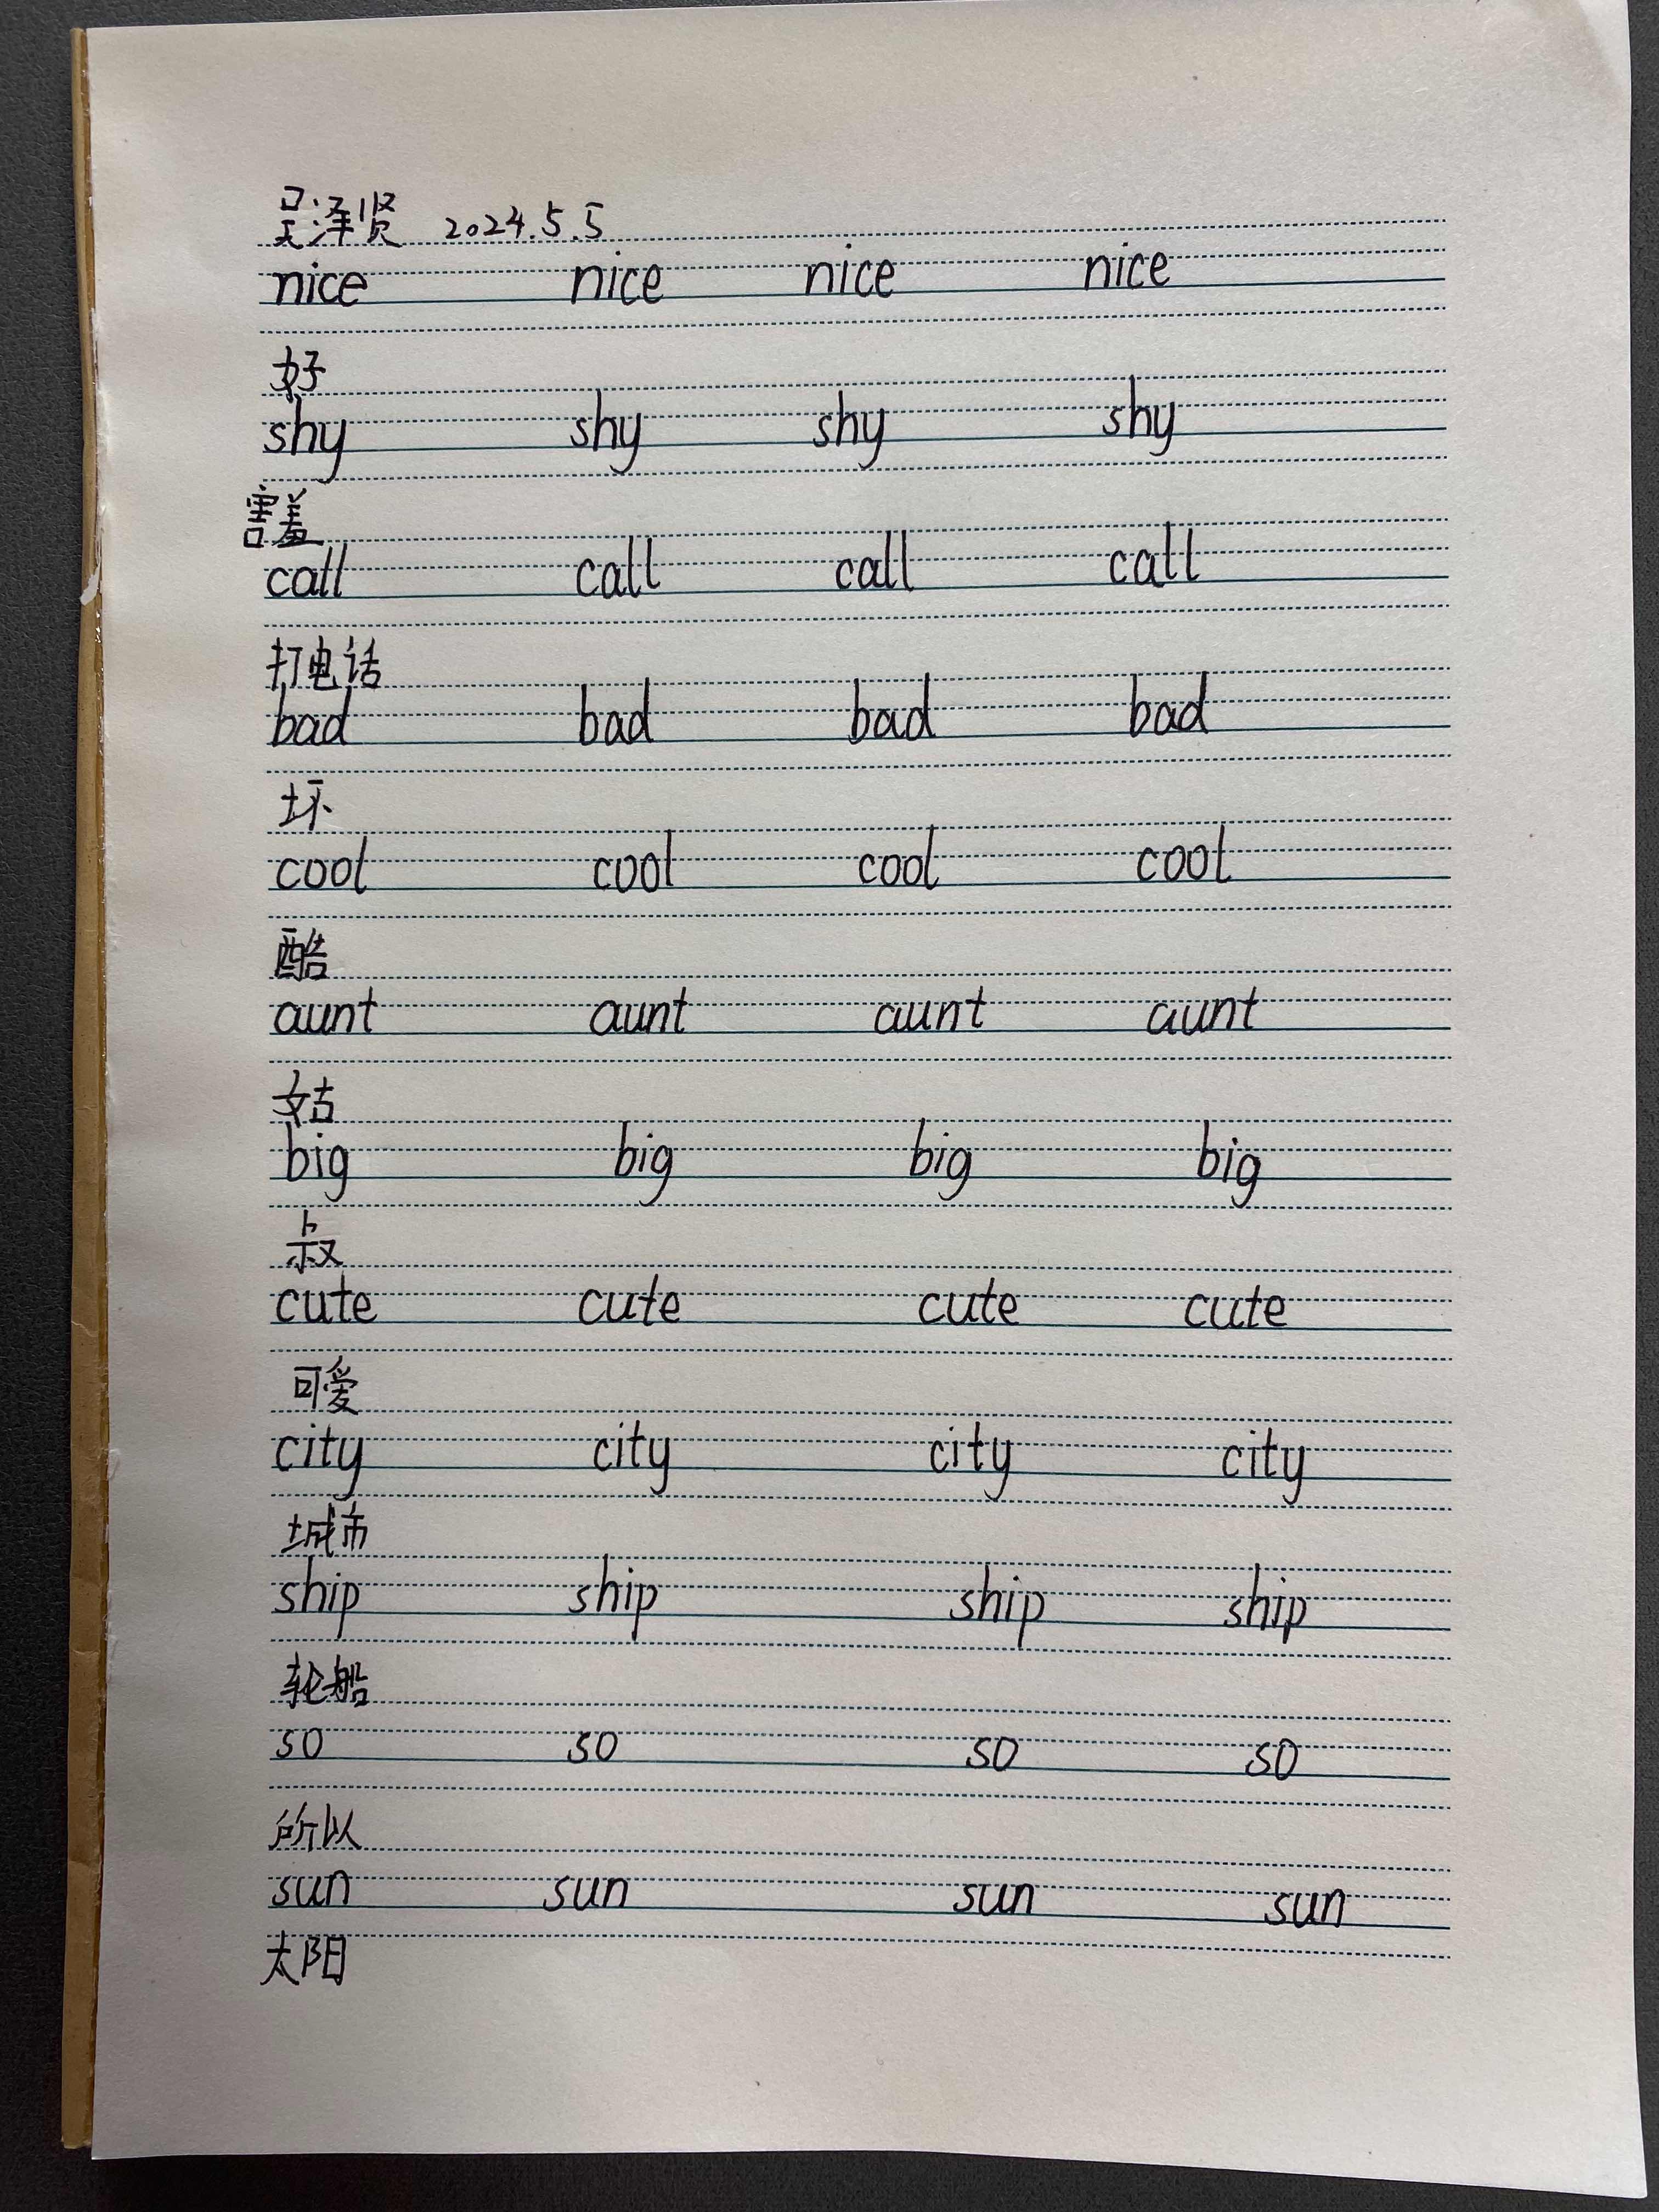 吴泽贤 2024.5.5
nice nice nice nice
好
shy shy shy shy
害羞
call call call call
打电话
bad bad bad bad
坏
cool cool cool cool
酷
aunt aunt aunt aunt
姑
big big big big
叔
cute cute cute cute
可爱
city city city city
城市
ship ship ship ship
轮船
so so so so
所以
sun sun sun sun
太阳